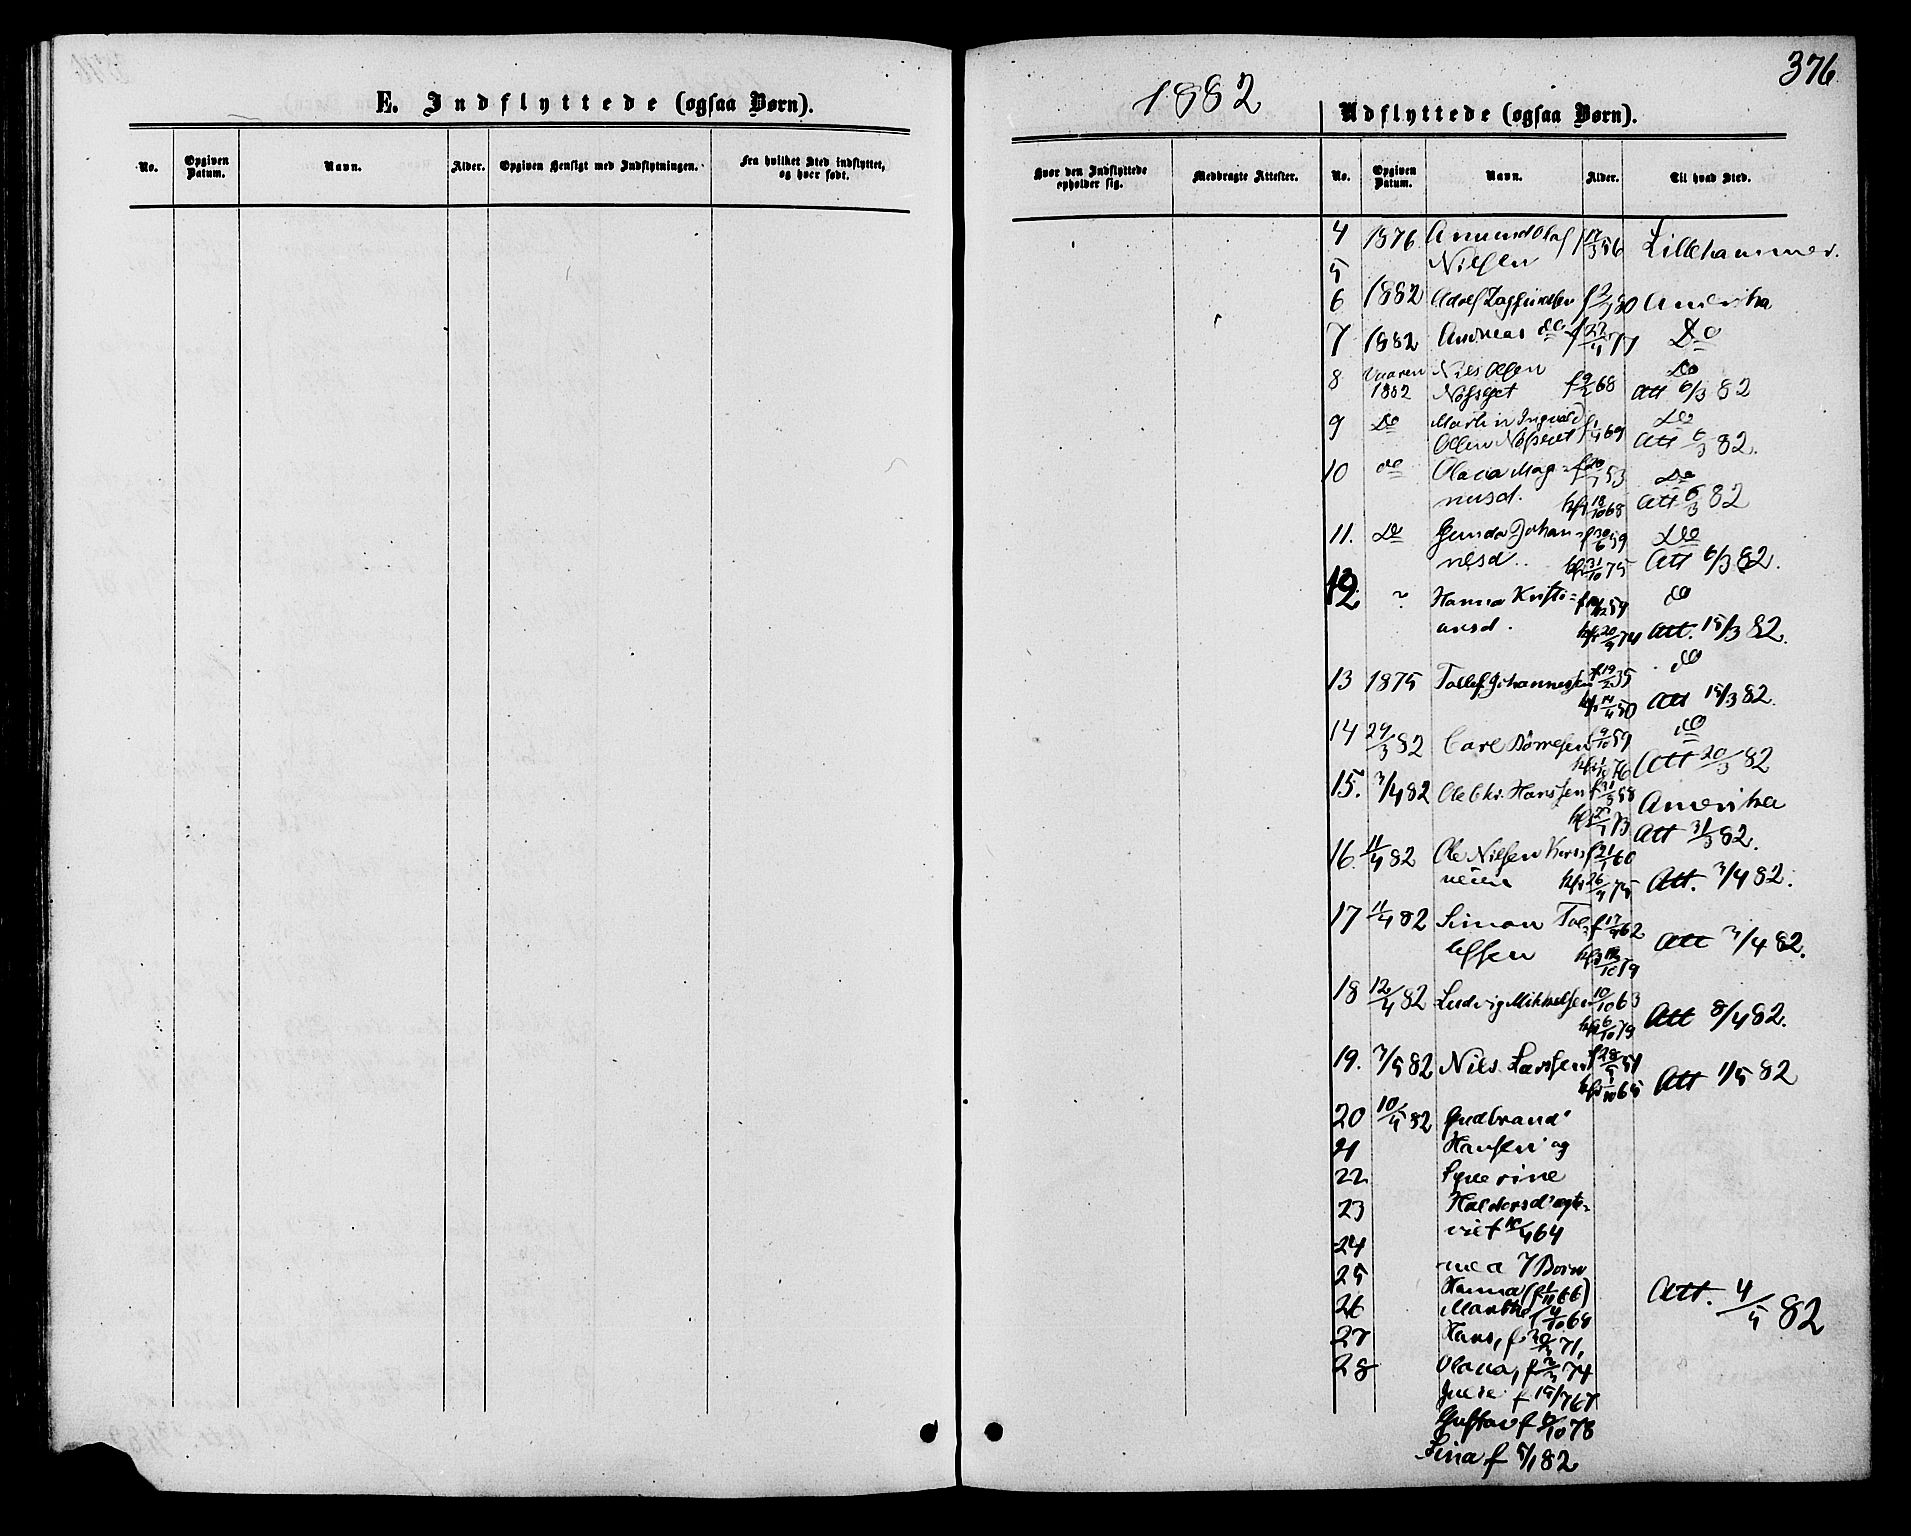 376
E. Indflyttede (ogsaa Børn).
No.
Opgiven Datum.
Navn.
Alder.
Opgiven Hensigt med Indflytningen.
Fra hvilket Sted indflyttet, og hvor født.
1882
Udflyttede (ogsaa Børn).
Hvor den Indflyttede opholder sig.
Medbragte Attester.
No.
Opgiven Datum.
Navn.
Alder.
Til hvad Sted.
4 1876 Amund Olaf f 17/3 56 Lillehammer.
5 Nilsen
6 1882 Adolf f 2/7 80 Amerika
7 1882 Andreas do f 22/4 77 Do
8 Vaaren Nils Olsen Do
1882 f 9/2 68 Att 6/3 82
9 Do Martin Ingvald Do
Olsen 69 Att 6/3 82.
10 do Olava Mag= f 20/7 53 Do
nusd. kfr 18/10 68 Att 6/3 82
11. Do Gunda Johan= f 30/6 59 Do
nesd.. kfr 31/10 75 Att 6/3 82.
12 ? Hanna Kristi= 59 do
ansd. kfr 20/9 74 Att. 15/3 82.
13 1875 Tollef Johannessen f 19/2 35 do
kfr 50 Att 15/3 82.
14 29/3 82 Carl Børresen f 9/10 59 do
kfr 1/10 76 Att 20/3 82
15. 3/4 82 Ole Chr. Hanssen f 31/3 58 Amerika
kfr 73 Att 31/3 82.
16. 11/4 82 Ole Nilsen f 21/7 60
kfr 26/9 75 Att. 3/4 82.
17 11/4 82 Simon Tol= f 17/9 62
lefsen kfr 12/10 79 Att 3/4 82.
18 12/4 82 Ludvig Mikkelsen 10/10 63
kfr 6/10 79 Att 8/4 82.
19. 3/5 82 Nils Larssen f 28/5 51
kfr 1/10 65 Att 1/5 82
20 10/5 82 Gudbrand
21 Hansen og
22 Syverine
23 Haldorsd ægte=
viet 64
24
med 7 Børn
25 Hanna (f 1/11 66)
26 Marthe f 4/10 69 Att. 4/5 82
27 Hans, f 71,
28 Olava, f 2/3 74
Julie f 15/7 67
Gustav f 6/10 78
Lina f 5/1 82